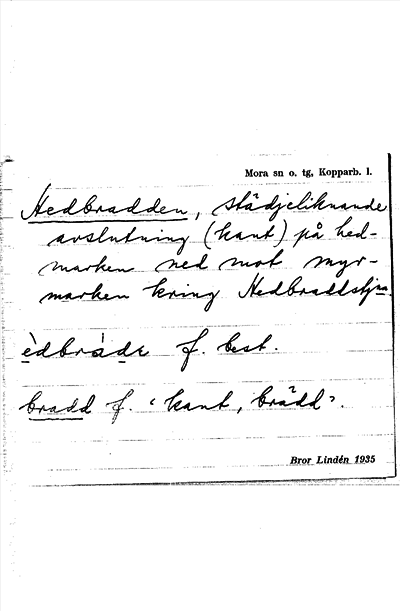 Mora sn o. tg, Kopparb. l.
Hedbradden, städjeliknande
avslutning (kant) på hed-
marken ned mot myr-
marken kring Hedbraddstjn.
èdbràdẹ f. best.
bradd f. 'kant, brädd'.
Bror Lindén 1935